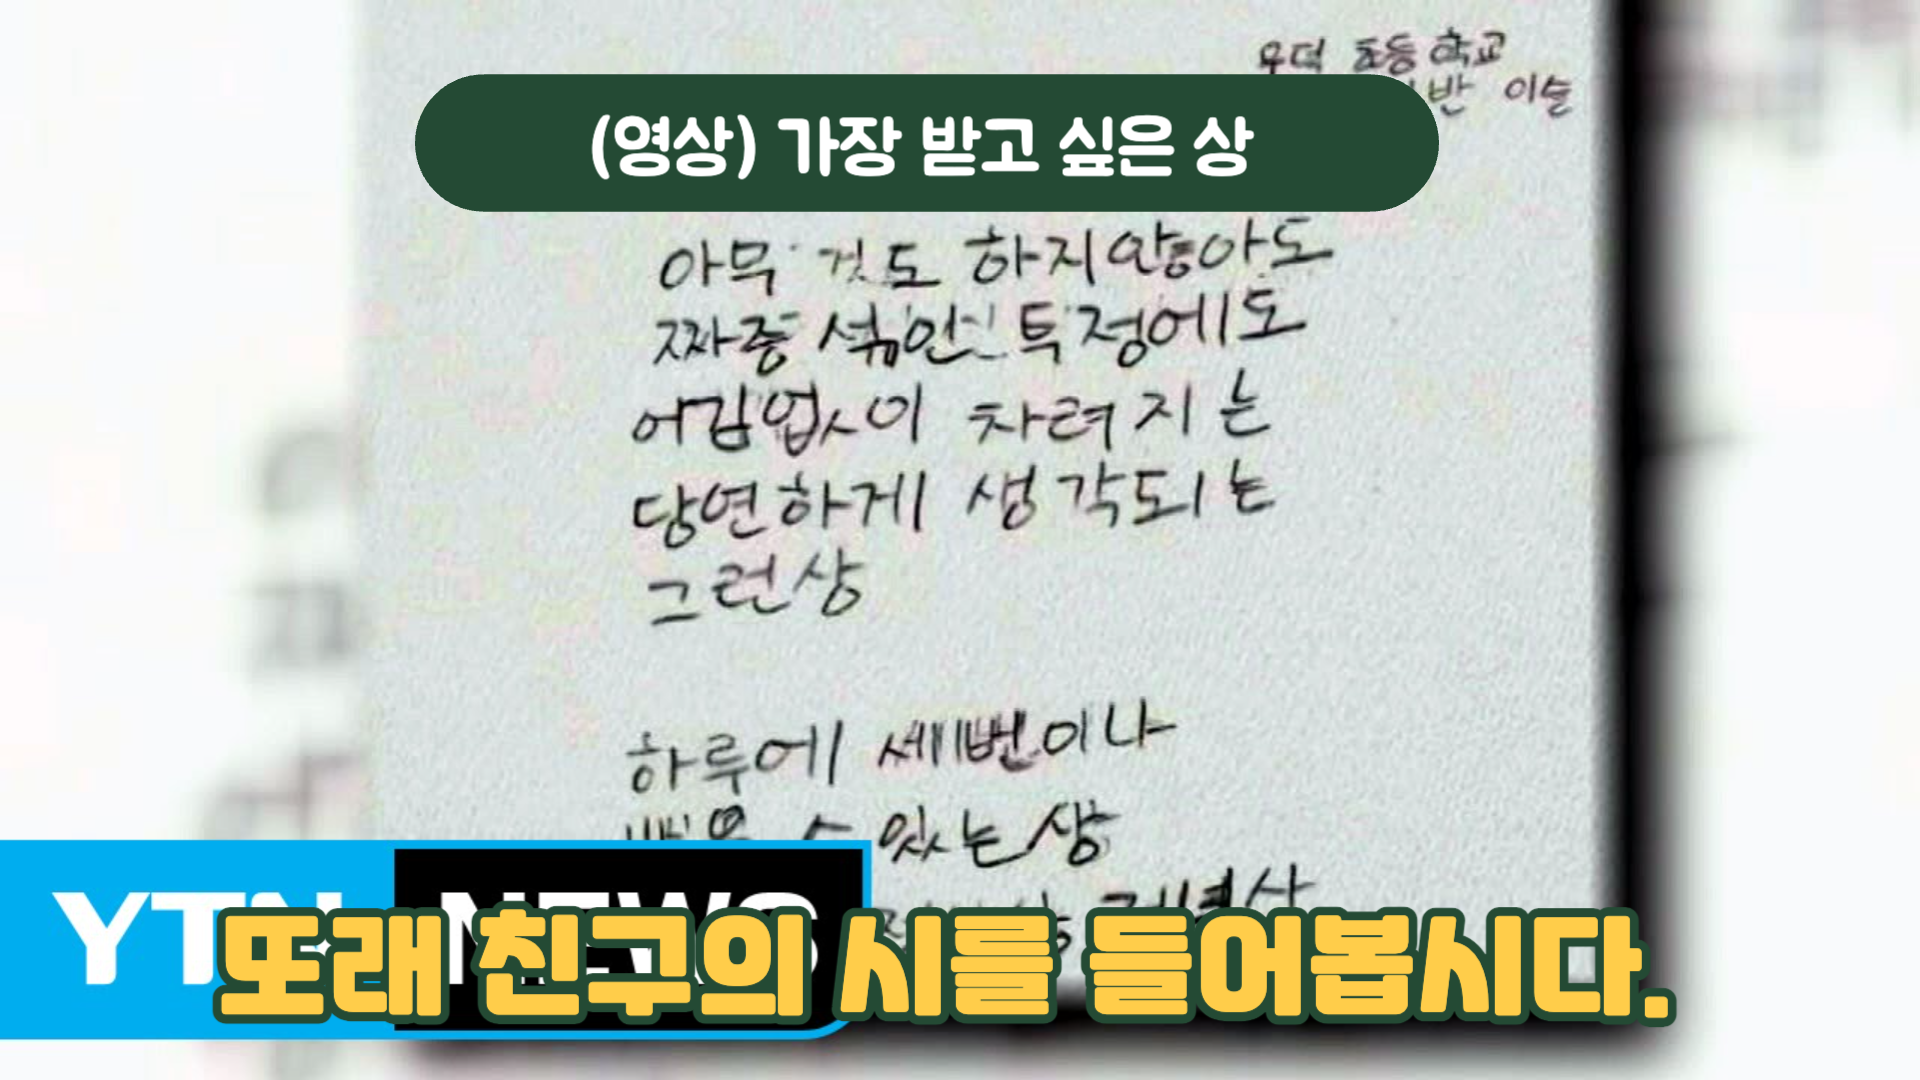 초등학교
반 이슬
(영상) 가장 받고 싶은 상
아무 것도 하지않아도
짜증 섞인 투정에도
어김없이 차려지는
당연하게 생각되는
그런상
하루에 세번이나
수 있는 상
저녁상
YTN NEWS
또래 친구의 시를 들어봅시다.